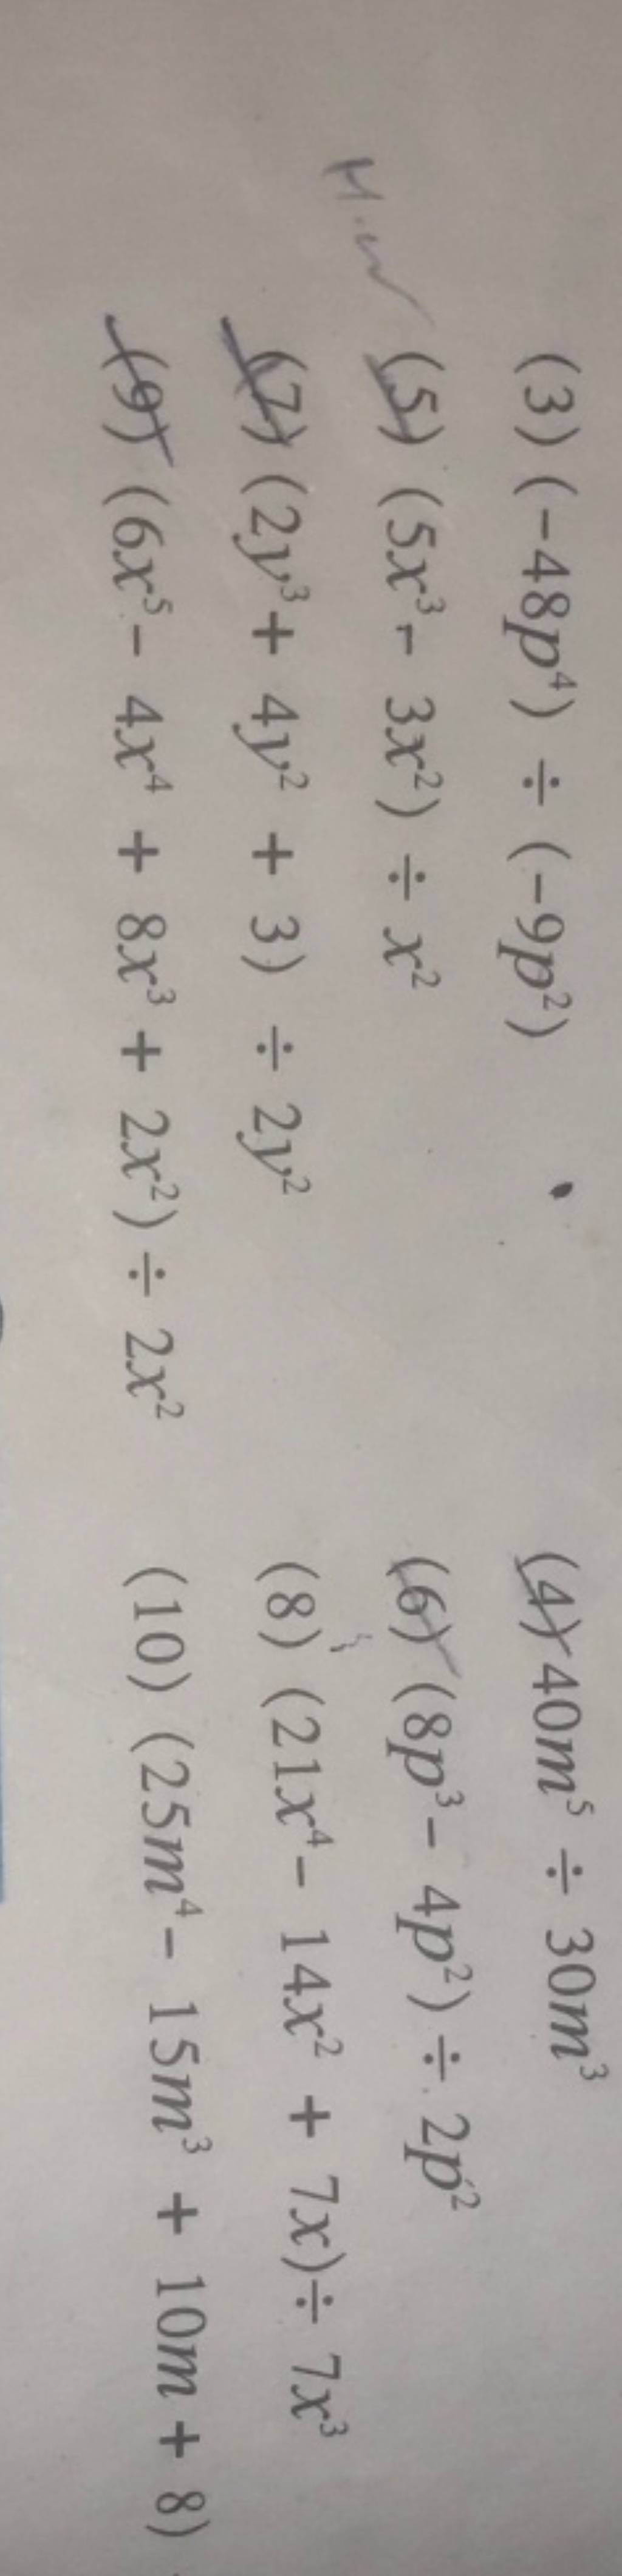 (3) (−48p⁴) ÷ (−9p²) (4) 40m⁵ ÷ 30m³
H.W (5) (5x³ − 3x²) ÷ x² (6) (8p³ − 4p²) ÷ 2p²
(7) (2y³ + 4y² + 3) ÷ 2y² (8) (21x⁴ − 14x² + 7x) ÷ 7x³
(9) (6x⁵ − 4x⁴ + 8x³ + 2x²) ÷ 2x² (10) (25m⁴ − 15m³ + 10m + 8)